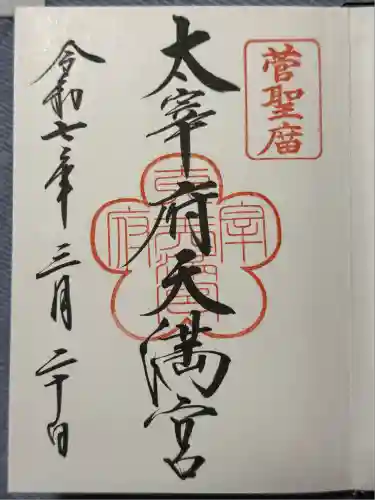 菅聖庿
太宰府天満宮
宰
府
令和七年
三月
二十日